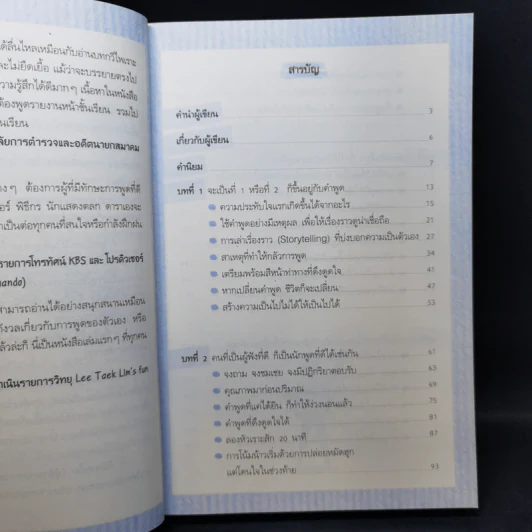 ได้ลื่นไหลเหมือนกับอ่านบทกวีไพเราะ
จะไม่ยืดเยื้อ แม้ว่าจะบรรยายตรงไป
ความรู้สึกได้ดีมากๆ เนื้อหาในหนังสือ
ต้องพูดรายงานหน้าชั้นเรียน รวมไป
นเรียน
ลัยการตำรวจและอดีตนายกสมาคม
างๆ ต้องการผู้ที่มีทักษะการพูดที่ดี
อร์ พิธีกร นักแสดงตลก ดาราเองจะ
าเป็นต่อทุกคนที่สนใจหรือกำลังฝึกฝน
รายการโทรทัศน์ KBS และ โปรดิวเซอร์
nando)
สามารถอ่านได้อย่างสนุกสนานเหมือน
กังวลเกี่ยวกับการพูดของตัวเอง หรือ
แล้วล่ะก็ นี่เป็นหนังสือเล่มแรกๆ ที่ทุกคน
าเนินรายการวิทยุ Lee Taek Lim's fun
สารบัญ
คำนำผู้เขียน 3
เกี่ยวกับผู้เขียน 6
คำนิยม 7
บทที่ 1 จะเป็นที่ 1 หรือที่ 2 ก็ขึ้นอยู่กับคำพูด 13
ความประทับใจแรกเกิดขึ้นได้จากอะไร 15
ใช้คำพูดอย่างมีเหตุผล เพื่อให้เรื่องราวดูน่าเชื่อถือ 21
การเล่าเรื่องราว (Storytelling) ที่บ่งบอกความเป็นตัวเอง 27
สาเหตุที่ทำให้กลัวการพูด 34
เตรียมพร้อมสีหน้าท่าทางที่ดึงดูดใจ 41
หากเปลี่ยนคำพูด ชีวิตก็จะเปลี่ยน 47
สร้างความเป็นไปไม่ได้ให้เป็นไปได้ 53
บทที่ 2 คนที่เป็นผู้ฟังที่ดี ก็เป็นนักพูดที่ดีได้เช่นกัน 61
จงถาม จงชมเชย จงมีปฏิกิริยาตอบรับ 63
คุณภาพมาก่อนปริมาณ 69
คำพูดที่แค่ได้ยิน ก็ทำให้ง่วงนอนแล้ว 75
คำพูดที่ดึงดูดใจได้ 81
ลองหัวเราะสัก 20 นาที 87
การโน้มน้าวเริ่มด้วยการปล่อยหมัดฮุก
แต่โดนใจในช่วงท้าย 93